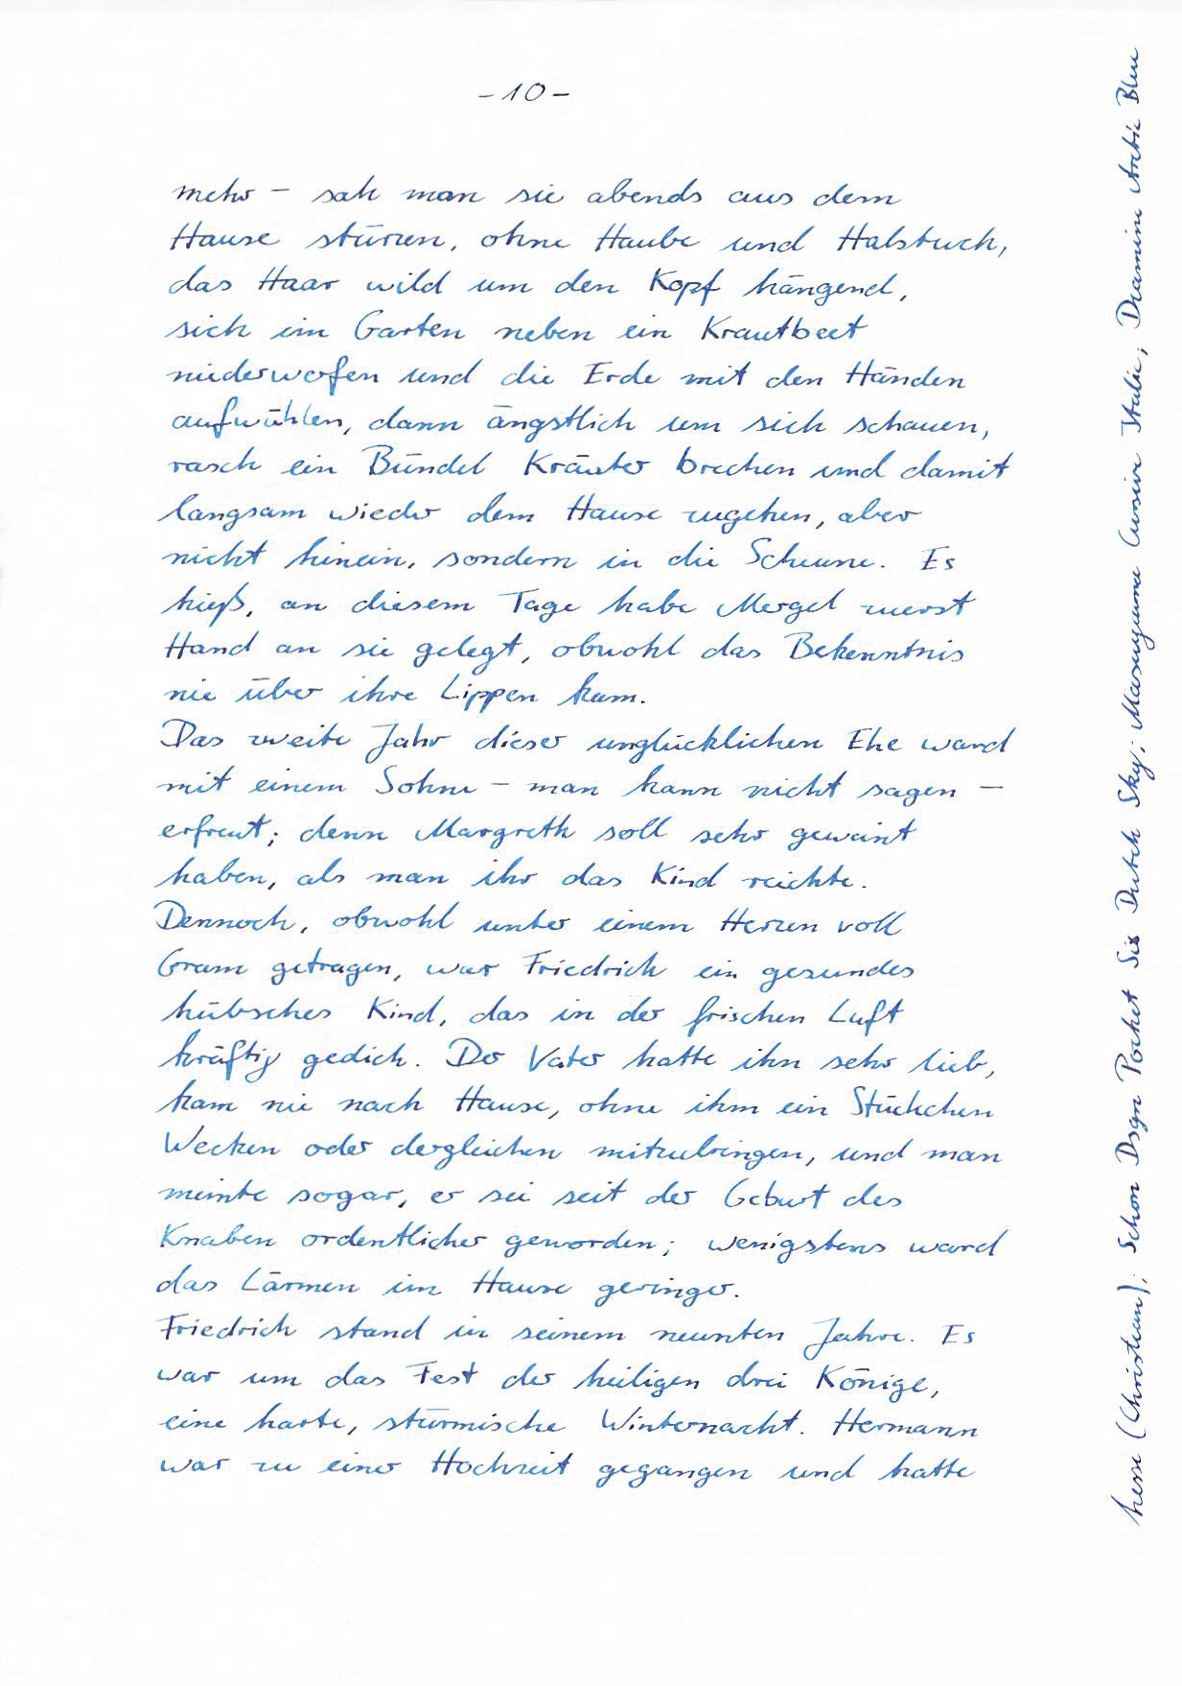 - 10 -
mehr – sah man sie abends aus dem
Hause stürzen, ohne Haube und Halstuch,
das Haar wild um den Kopf hängend,
sich im Garten neben ein Krautbeet
niederwerfen und die Erde mit den Händen
aufwühlen, dann ängstlich um sich schauen,
rasch ein Bündel Kräuter brechen und damit
langsam wieder dem Hause zugehen, aber
nicht hinein, sondern in die Scheune. Es
hieß, an diesem Tage habe Mergel zuerst
Hand an sie gelegt, obwohl das Bekenntnis
nie über ihre Lippen kam.
Das zweite Jahr dieser unglücklichen Ehe ward
mit einem Sohne – man kann nicht sagen –
erfreut; denn Margreth soll sehr geweint
haben, als man ihr das Kind reichte.
Dennoch, obwohl unter einem Herzen voll
Gram getragen, war Friedrich ein gesundes
hübsches Kind, das in der frischen Luft
kräftig gedieh. Der Vater hatte ihn sehr lieb,
kam nie nach Hause, ohne ihm ein Stückchen
Wecken oder dergleichen mitzubringen, und man
meinte sogar, er sei seit der Geburt des
Knaben ordentlicher geworden; wenigstens ward
das Lärmen im Hause geringer.
Friedrich stand in seinem neunten Jahre. Es
war um das Fest der heiligen drei Könige,
eine harte, stürmische Winternacht. Hermann
war zu einer Hochzeit gegangen und hatte
hesse (Christian); Schon Dsgn Pocket Six Dutch Sky; Masuyama Cursive Italic; Diamine Arctic Blue